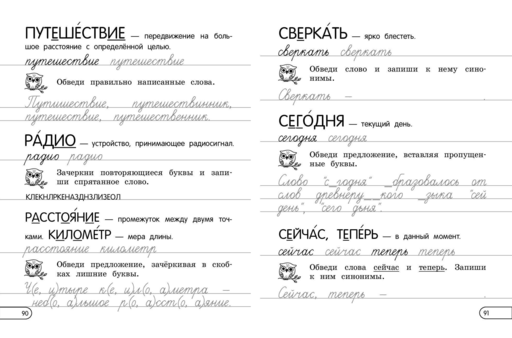 ПУТЕШЕ́СТВИЕ — передвижение на боль-
шое расстояние с определённой целью.
путешествие путешествие
Обведи правильно написанные слова.
Путишествие, путешественник,
путешествие, путешественник.
РА́ДИО — устройство, принимающее радиосигнал.
радио радио
Зачеркни повторяющиеся буквы и запи-
ши спрятанное слово.
РАССТОЯ́НИЕ — промежуток между двумя точ-
ками. КИЛОМЕ́ТР — мера длины.
расстояние километр
Обведи предложение, зачёркивая в скоб-
ках лишние буквы.
Ч(е, и)тыре к(е, и)л(о, а)метра —
неб(о, а)льшое р(о, а)ост(о, а)яние.
90
СВЕРКА́ТЬ — ярко блестеть.
сверкать сверкать
Обведи слово и запиши к нему сино-
нимы.
Сверкать — .
СЕГО́ДНЯ — текущий день.
сегодня сегодня
Обведи предложение, вставляя пропущен-
ные буквы.
Слово "с_годня" _бразовалось от
слов древнеру__кого _зыка "сей
день", "сего дьня".
СЕЙЧА́С, ТЕПЕ́РЬ — в данный момент.
сейчас сейчас теперь теперь
Обведи слова сейчас и теперь. Запиши
к ним синонимы.
Сейчас, теперь — .
91